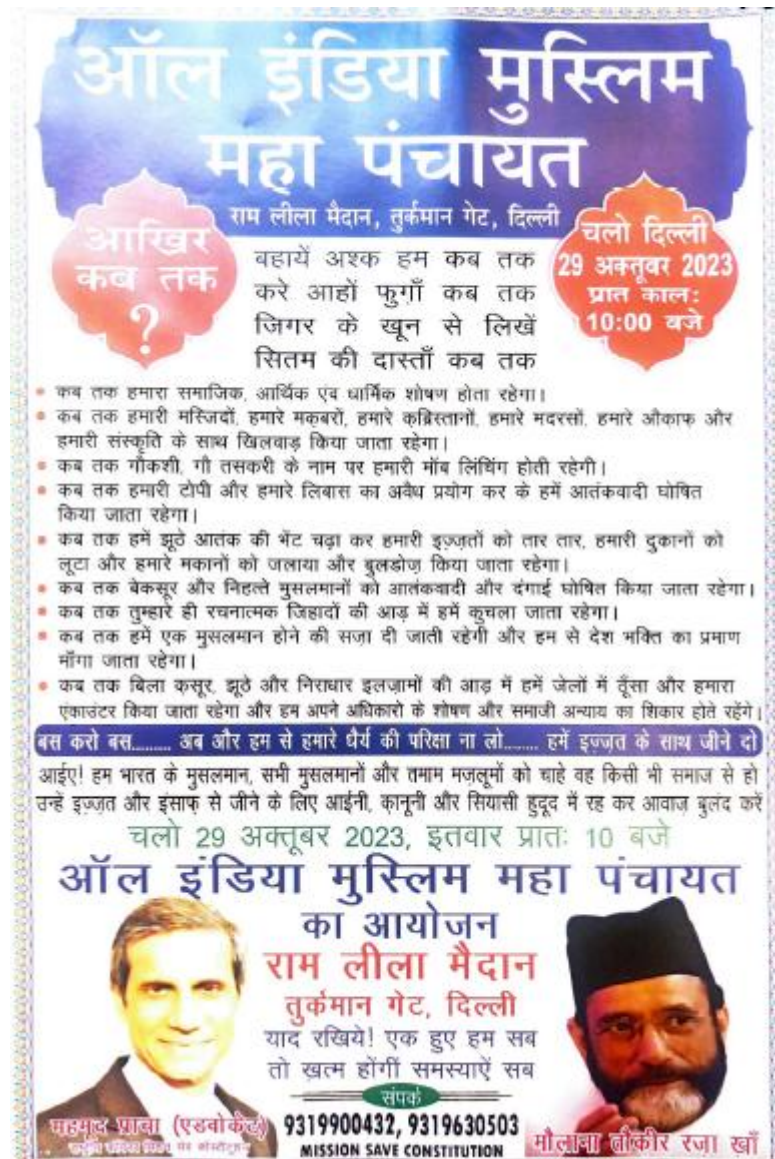 ऑल इंडिया मुस्लिम
महा पंचायत
राम लीला मैदान, तुर्कमान गेट, दिल्ली
आखिर
कब तक
?
चलो दिल्ली
29 अक्तूवर 2023
प्रात काल:
10:00 बजे
बहायें अश्क हम कब तक
करे आहों फुगाँ कब तक
जिगर के खून से लिखें
सितम की दास्ताँ कब तक
• कब तक हमारा समाजिक, आर्थिक एंव धार्मिक शोषण होता रहेगा।
• कब तक हमारी मस्जिदों, हमारे मक़बरों, हमारे क़ब्रिस्तानों, हमारे मदरसों, हमारे औकाफ और
हमारी संस्कृति के साथ खिलवाड़ किया जाता रहेगा।
• कब तक गौकशी, गौ तसकरी के नाम पर हमारी मॉब लिंचिंग होती रहेगी।
• कब तक हमारी टोपी और हमारे लिबास का अवैध प्रयोग कर के हमें आतंकवादी घोषित
किया जाता रहेगा।
• कब तक हमें झूठे आतंक की भेंट चढ़ा कर हमारी इज़्ज़तों को तार तार, हमारी दुकानों को
लूटा और हमारे मकानों को जलाया और बुलडोज़ किया जाता रहेगा।
• कब तक बेकसूर और निहत्ते मुसलमानों को आतंकवादी और दंगाई घोषित किया जाता रहेगा।
• कब तक तुम्हारे ही रचनात्मक जिहादों की आड़ में हमें कुचला जाता रहेगा।
• कब तक हमें एक मुसलमान होने की सज़ा दी जाती रहेगी और हम से देश भक्ति का प्रमाण
माँगा जाता रहेगा।
• कब तक बिला क़सूर, झूठे और निराधार इलज़ामों की आड़ में हमें जेलों में ठूँसा और हमारा
एंकाउंटर किया जाता रहेगा और हम अपने अधिकारो के शोषण और समाजी अन्याय का शिकार होते रहेंगे।
बस करो बस......... अब और हम से हमारे धैर्य की परिक्षा ना लो........ हमें इज़्ज़त के साथ जीने दो
आईए! हम भारत के मुसलमान, सभी मुसलमानों और तमाम मज़लूमों को चाहे वह किसी भी समाज से हो
उन्हें इज़्ज़त और इंसाफ से जीने के लिए आईनी, क़ानूनी और सियासी हुदूद में रह कर आवाज़ बुलंद करें
चलो 29 अक्तूबर 2023, इतवार प्रातः 10 बजे
ऑल इंडिया मुस्लिम महा पंचायत
का आयोजन
राम लीला मैदान
तुर्कमान गेट, दिल्ली
याद रखिये! एक हुए हम सब
तो ख़त्म होंगीं समस्याऐं सब
संपर्क
9319900432, 9319630503
MISSION SAVE CONSTITUTION
महमूद प्राचा (एडवोकेट)
मौलाना तौकीर रज़ा खाँ